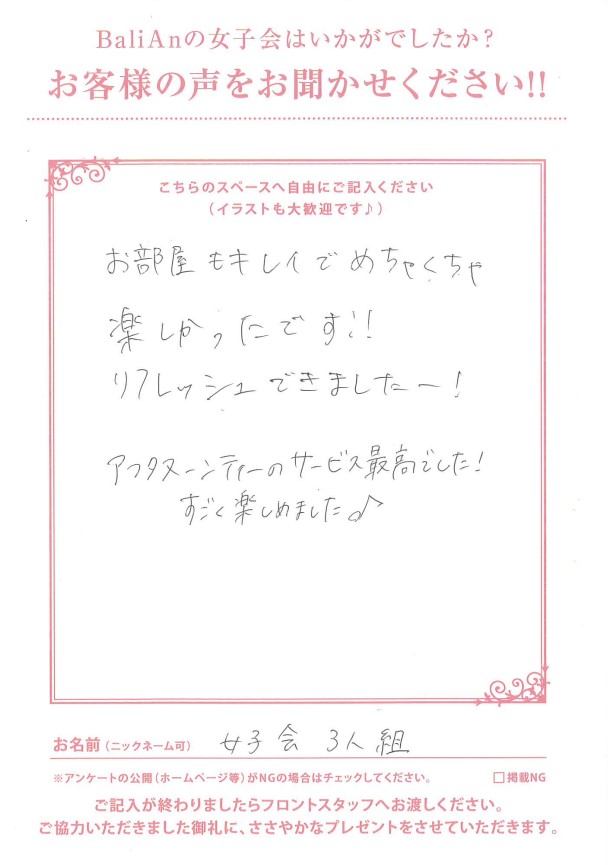 BaliAnの女子会はいかがでしたか?
お客様の声をお聞かせください!!
こちらのスペースへ自由にご記入ください
(イラストも大歓迎です♪)
お部屋もキレイでめちゃくちゃ
楽しかったです!!
リフレッシュできましたー!
アフタヌーンティーのサービス最高でした!
すごく楽しめました♪
お名前(ニックネーム可) 女子会 3人組
※アンケートの公開(ホームページ等)がNGの場合はチェックしてください。 □掲載NG
ご記入が終わりましたらフロントスタッフへお渡しください。
ご協力いただきました御礼に、ささやかなプレゼントをさせていただきます。